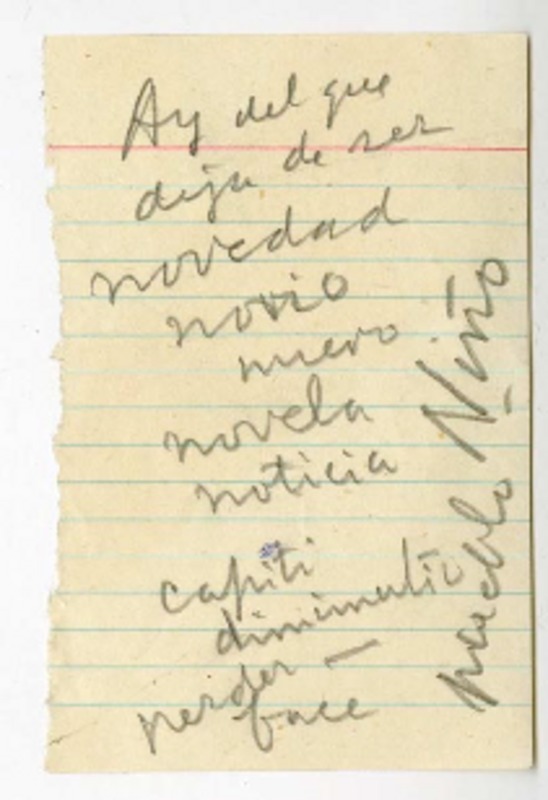 Ay del que
deja de ser
novedad
novio
nuevo
novela
noticia
capiti
diminutio
perder —
face
pueblo Niño